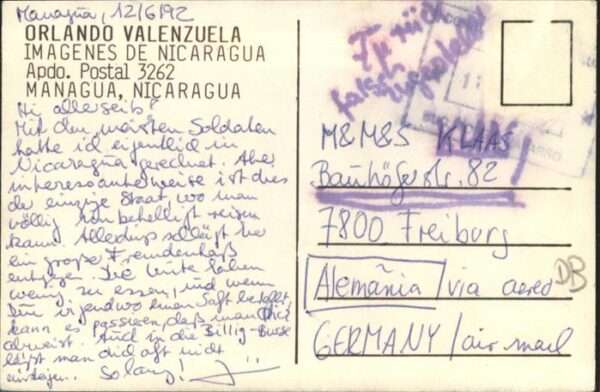 Managua, 12/6/92
ORLANDO VALENZUELA
IMAGENES DE NICARAGUA
Apdo. Postal 3262
MANAGUA, NICARAGUA
Hi allerseits!
Mit den meisten Soldaten
hatte ich eigentlich in
Nicaragua gerechnet. Aber
interessanterweise ist dies
der einzige Staat, wo man
völlig unbehelligt reisen
kann. Allerdings schlägt hier
ein große Fremdenhaß
entgegen. Die Leute haben
wenig zu essen, und wenn
Du irgendwo einen Saft bestellst,
kann es passieren, daß man Dich
abweist. Auch in die Billig-Busse
läßt man dich oft nicht
einsteigen. So long!
falsch
zugestellt
M&M&S KLAAS
82
7800 Freiburg
Alemania / via aereo
GERMANY / air mail
DB